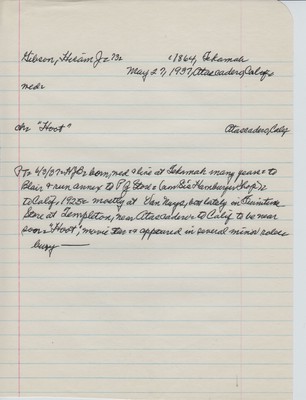 Gibson, Hiram Jr 73
c1864, Tekamah
May 27, 1937, Atascadero, Calif
med
ch "Hoot"
Atascadero, Calif
born, med & live at Tekamah many years to
Blair & run annex to P G Store
to Calif, 1925 mostly at Van Nuys, but lately in Furniture
Store at Templeton, near Atascadero to Calif to be near
son "Hoot," movie star & appeared in several minor roles
bury —